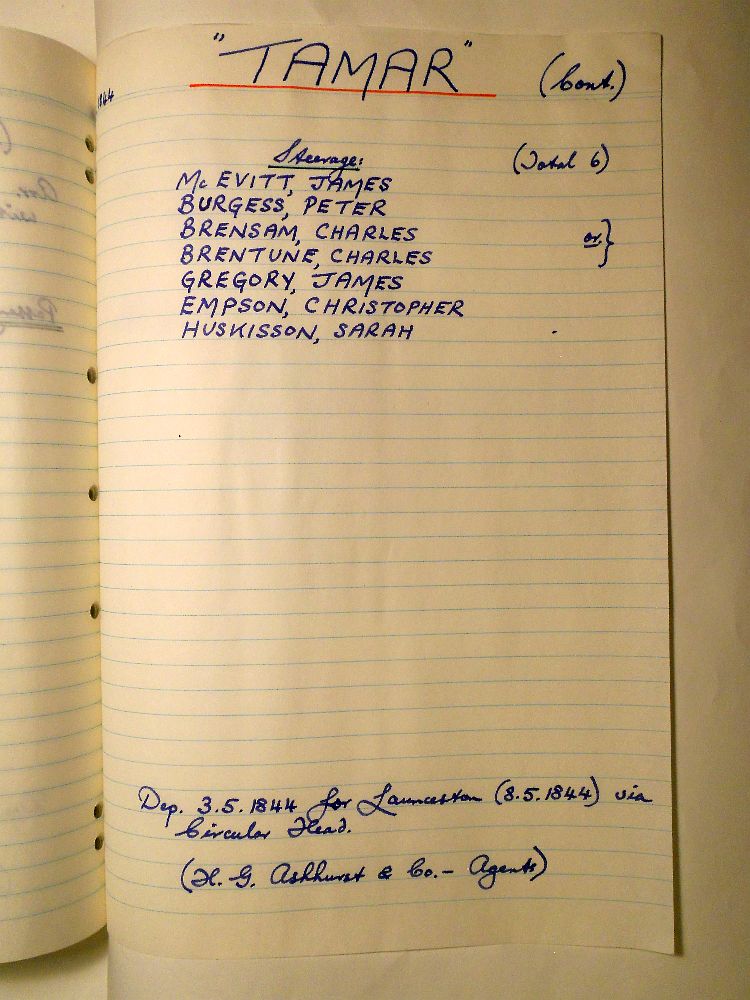 "TAMAR" (Cont.)
1844
Steerage: (Total 6)
Mc EVITT, JAMES
BURGESS, PETER
BRENSAM, CHARLES or }
BRENTUNE, CHARLES
GREGORY, JAMES
EMPSON, CHRISTOPHER
HUSKISSON, SARAH
Dep. 3.5.1844 for Launceston (8.5.1844) via
Circular Head.
(H. G. Ashhurst & Co. - Agents)